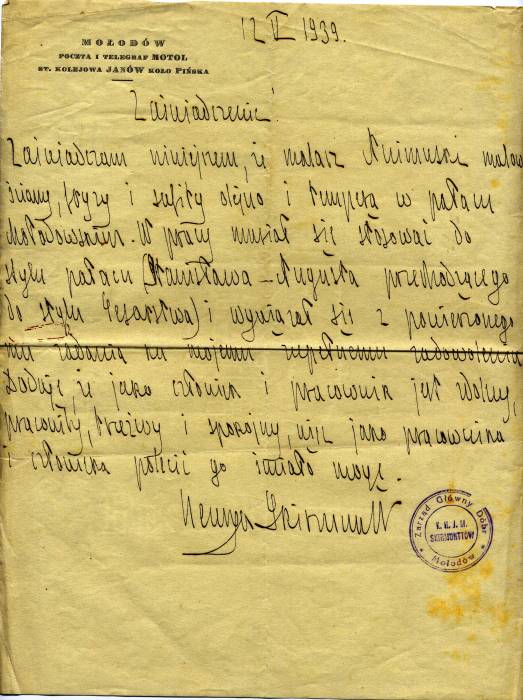 12 VI 1939.
MOŁODÓW
POCZTA I TELEGRAF MOTOL
ST. KOLEJOWA JANÓW KOŁO PIŃSKA
Zaświadczenie
Zaświadczam niniejszem, że malarz malował
ściany, fryzy i sufity olejno i temperą w pałacu
Mołodowskim. W pracy musiał się stosować do
stylu pałacu (Stanisława-Augusta przechodzącego
do stylu Cesarstwa) i wywiązał się z powierzonego
mu zadania ku mojemu zupełnemu zadowoleniu
Dodaję, że jako człowiek i pracownik jest zdolny,
pracowity, trzeźwy i spokojny, więc jako pracownika
i człowieka polecić go śmiało mogę.
Henryk Skirmuntt
Zarząd Główny Dóbr
SKIRMUNTTÓW
Mołodów